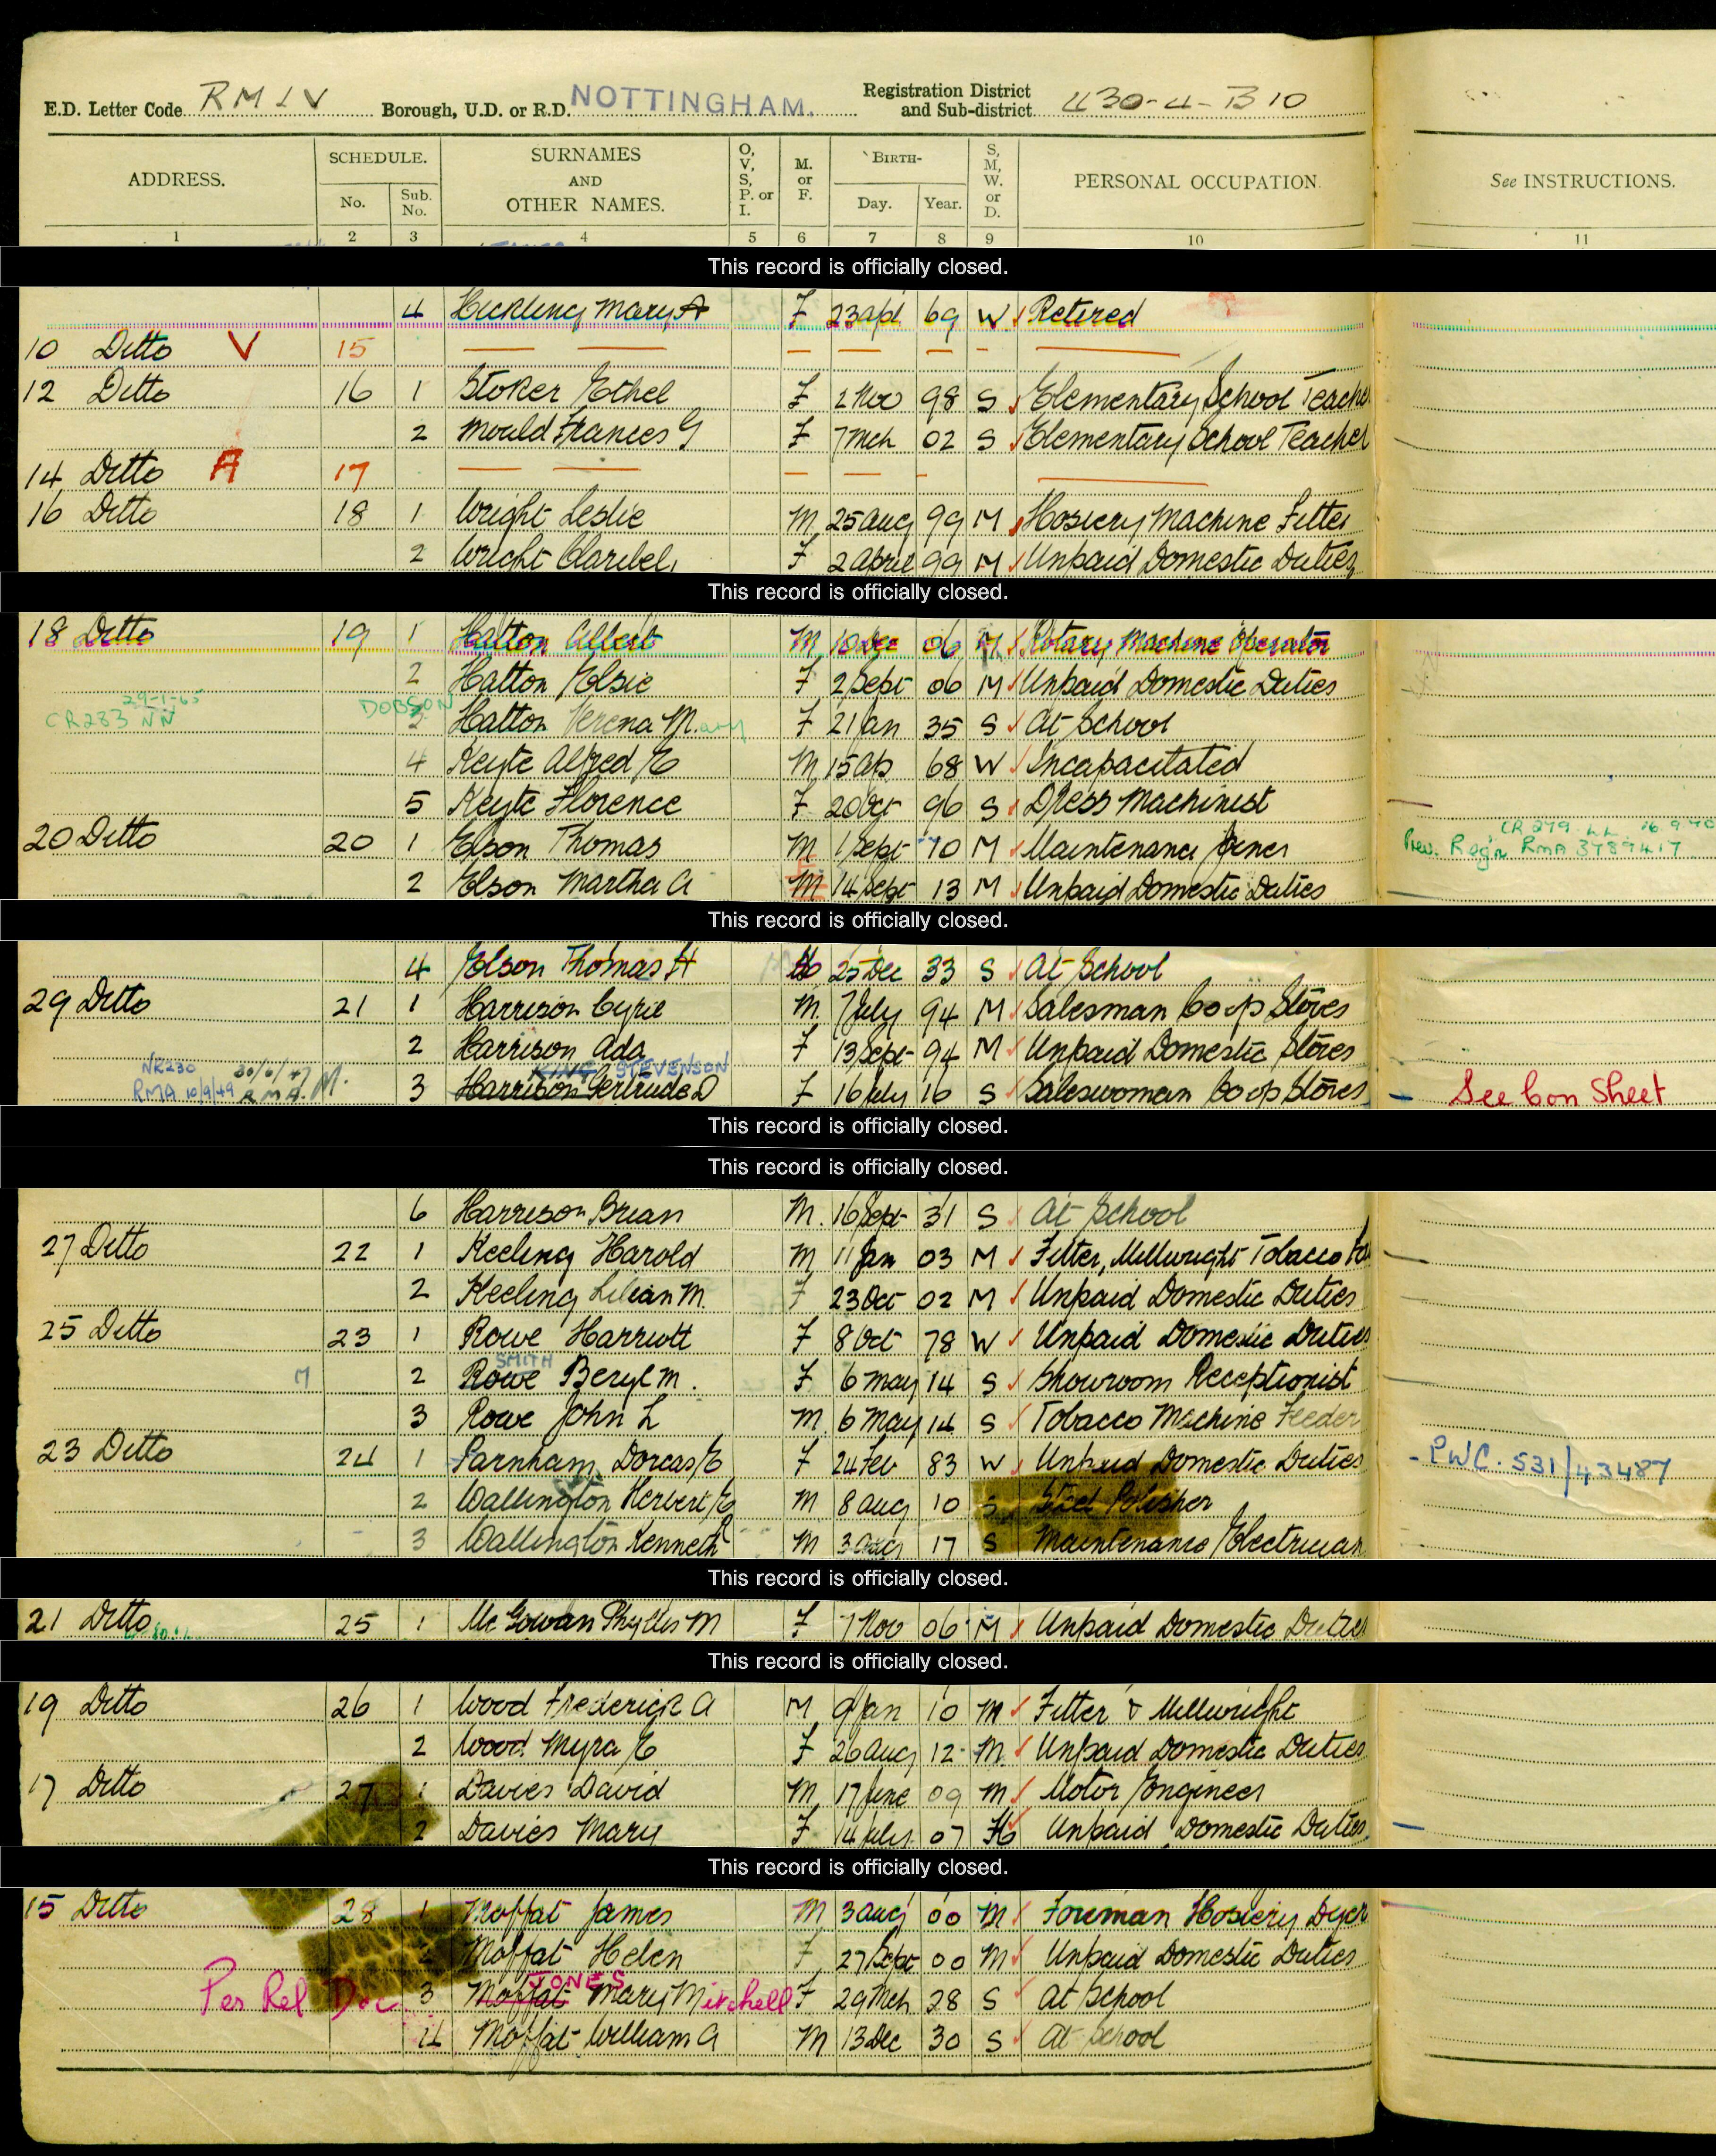 E.D. Letter Code RMLV Borough, U.D. or R.D. NOTTINGHAM. Registration District and Sub-district 430-4-B10
ADDRESS. SCHEDULE. No. Sub. No. SURNAMES AND OTHER NAMES. O, V, S, P. or I. M. or F. BIRTH- Day. Year. S, M, W. or D. PERSONAL OCCUPATION. See INSTRUCTIONS.
1 2 3 4 5 6 7 8 9 10 11
This record is officially closed.
4 Hickling Mary A F 23 Apl 69 W Retired
10 Ditto V 15
12 Ditto 16 1 Stoker Ethel F 2 Nov 98 S Elementary School Teacher
2 Mould Frances G F 7 Mch 02 S Elementary School Teacher
14 Ditto A 17
16 Ditto 18 1 Wright Leslie M 25 Aug 99 M Hosiery Machine Fitter
2 Wright Claribel F 2 April 99 M Unpaid Domestic Duties
This record is officially closed.
18 Ditto 19 1 Hatton Albert M 10 Dec 06 M Rotary Machine Operator
2 Hatton Elsie F 2 Sept 06 M Unpaid Domestic Duties
29-1-65
CR283 NN DOBSON
Hatton Verena Mary F 21 Jan 35 S At School
4 Keyte Alfred E M 15 Ap 68 W Incapacitated
5 Keyte Florence F 20 Oct 96 S Dress Machinist
20 Ditto 20 1 Elson Thomas M 1 Sept 10 M Maintenance Joiner
CR 279
Prev. Regn. RMA 3789417
2 Elson Martha A M 14 Sept 13 M Unpaid Domestic Duties
This record is officially closed.
4 Elson Thomas H 25 Dec 33 S At School
29 Ditto 21 1 Harrison Cyril M 7 July 94 M Salesman Co op Stores
2 Harrison Ada F 13 Sept 94 M Unpaid Domestic Stores
NR230 30/6/47 M. KING STEVENSON
RMA 10/9/49 RMA. 3 Harrison Gertrude D F 16 July 16 S Saleswoman Co op Stores See Con Sheet
This record is officially closed.
This record is officially closed.
6 Harrison Brian M. 16 Sept 31 S At School
27 Ditto 22 1 Keeling Harold M 11 Jan 03 M Fitter, Millwright Tobacco
2 Keeling Lilian M. F 23 Oct 02 M Unpaid Domestic Duties
25 Ditto 23 1 Rowe Harriott F 8 Oct 78 W Unpaid Domestic Duties
SMITH
M 2 Rowe Beryl M. F 6 May 14 S Showroom Receptionist
3 Rowe John L M 6 May 14 S Tobacco Machine Feeder
23 Ditto 24 1 Parnham Dorcas E F 24 Feb 83 W Unpaid Domestic Duties PWC. 531/43487
2 Wallington Herbert E M 8 Aug 10 S Polisher
3 Wallington Kenneth M 3 Aug 17 S Maintenance Electrician
This record is officially closed.
21 Ditto 25 1 McGowan Phyllis M F 7 Nov 06 M Unpaid Domestic Duties
This record is officially closed.
19 Ditto 26 1 Wood Frederick A M 9 Jan 10 M Fitter & Millwright
2 Wood Myra E F 26 Aug 12 M Unpaid Domestic Duties
17 Ditto 27 1 Davies David M 17 June 09 M Motor Engineer
2 Davies Mary F 14 July 07 Unpaid Domestic Duties
This record is officially closed.
15 Ditto 28 1 Moffat James M 3 Aug 00 M Foreman Hosiery Dyer
2 Moffat Helen F 27 Sept 00 M Unpaid Domestic Duties
JONES
Per Rel Doc 3 Moffat Mary Mitchell F 29 Mch 28 S At School
4 Moffat William A M 13 Dec 30 S At School